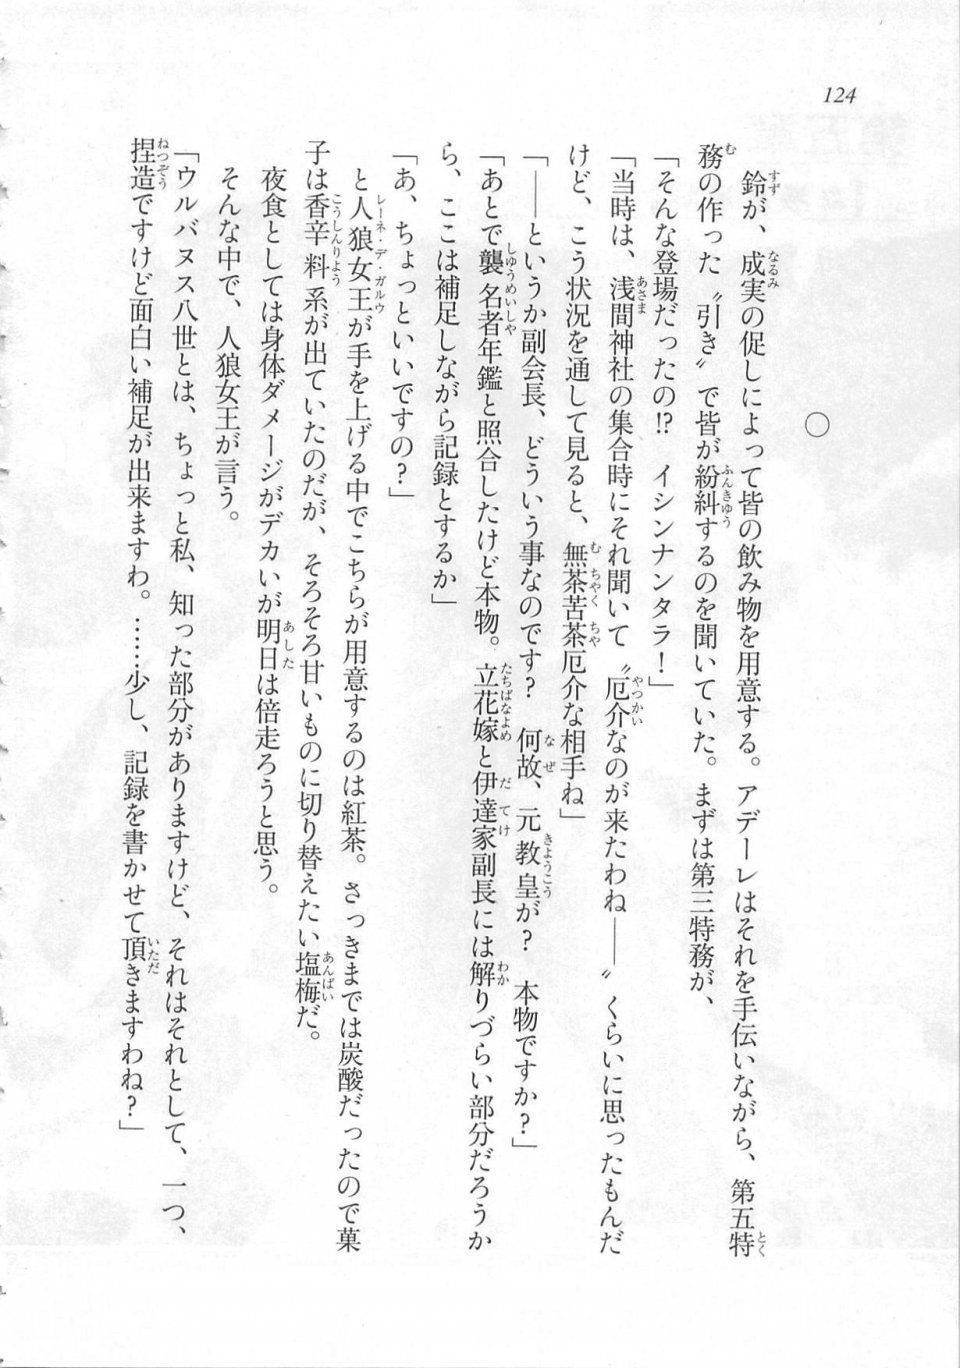 124
○
鈴が、成実の促しによって皆の飲み物を用意する。アデーレはそれを手伝いながら、第五特
務の作った〝引き〟で皆が紛糾するのを聞いていた。まずは第三特務が、
「そんな登場だったの!? イシンナンタラ！」
「当時は、浅間神社の集合時にそれ聞いて〝厄介なのが来たわね――〟くらいに思ったもんだ
けど、こう状況を通して見ると、無茶苦茶厄介な相手ね」
「――というか副会長、どういう事なのです？　何故、元教皇が？　本物ですか？」
「あとで襲名者年鑑と照合したけど本物。立花嫁と伊達家副長には解りづらい部分だろうか
ら、ここは補足しながら記録とするか」
「あ、ちょっといいですの？」
と人狼女王が手を上げる中でこちらが用意するのは紅茶。さっきまでは炭酸だったので菓
子は香辛料系が出ていたのだが、そろそろ甘いものに切り替えたい塩梅だ。
夜食としては身体ダメージがデカいが明日は倍走ろうと思う。
そんな中で、人狼女王が言う。
「ウルバヌス八世とは、ちょっと私、知った部分がありますけど、それはそれとして、一つ、
捏造ですけど面白い補足が出来ますわ。……少し、記録を書かせて頂きますわね？」